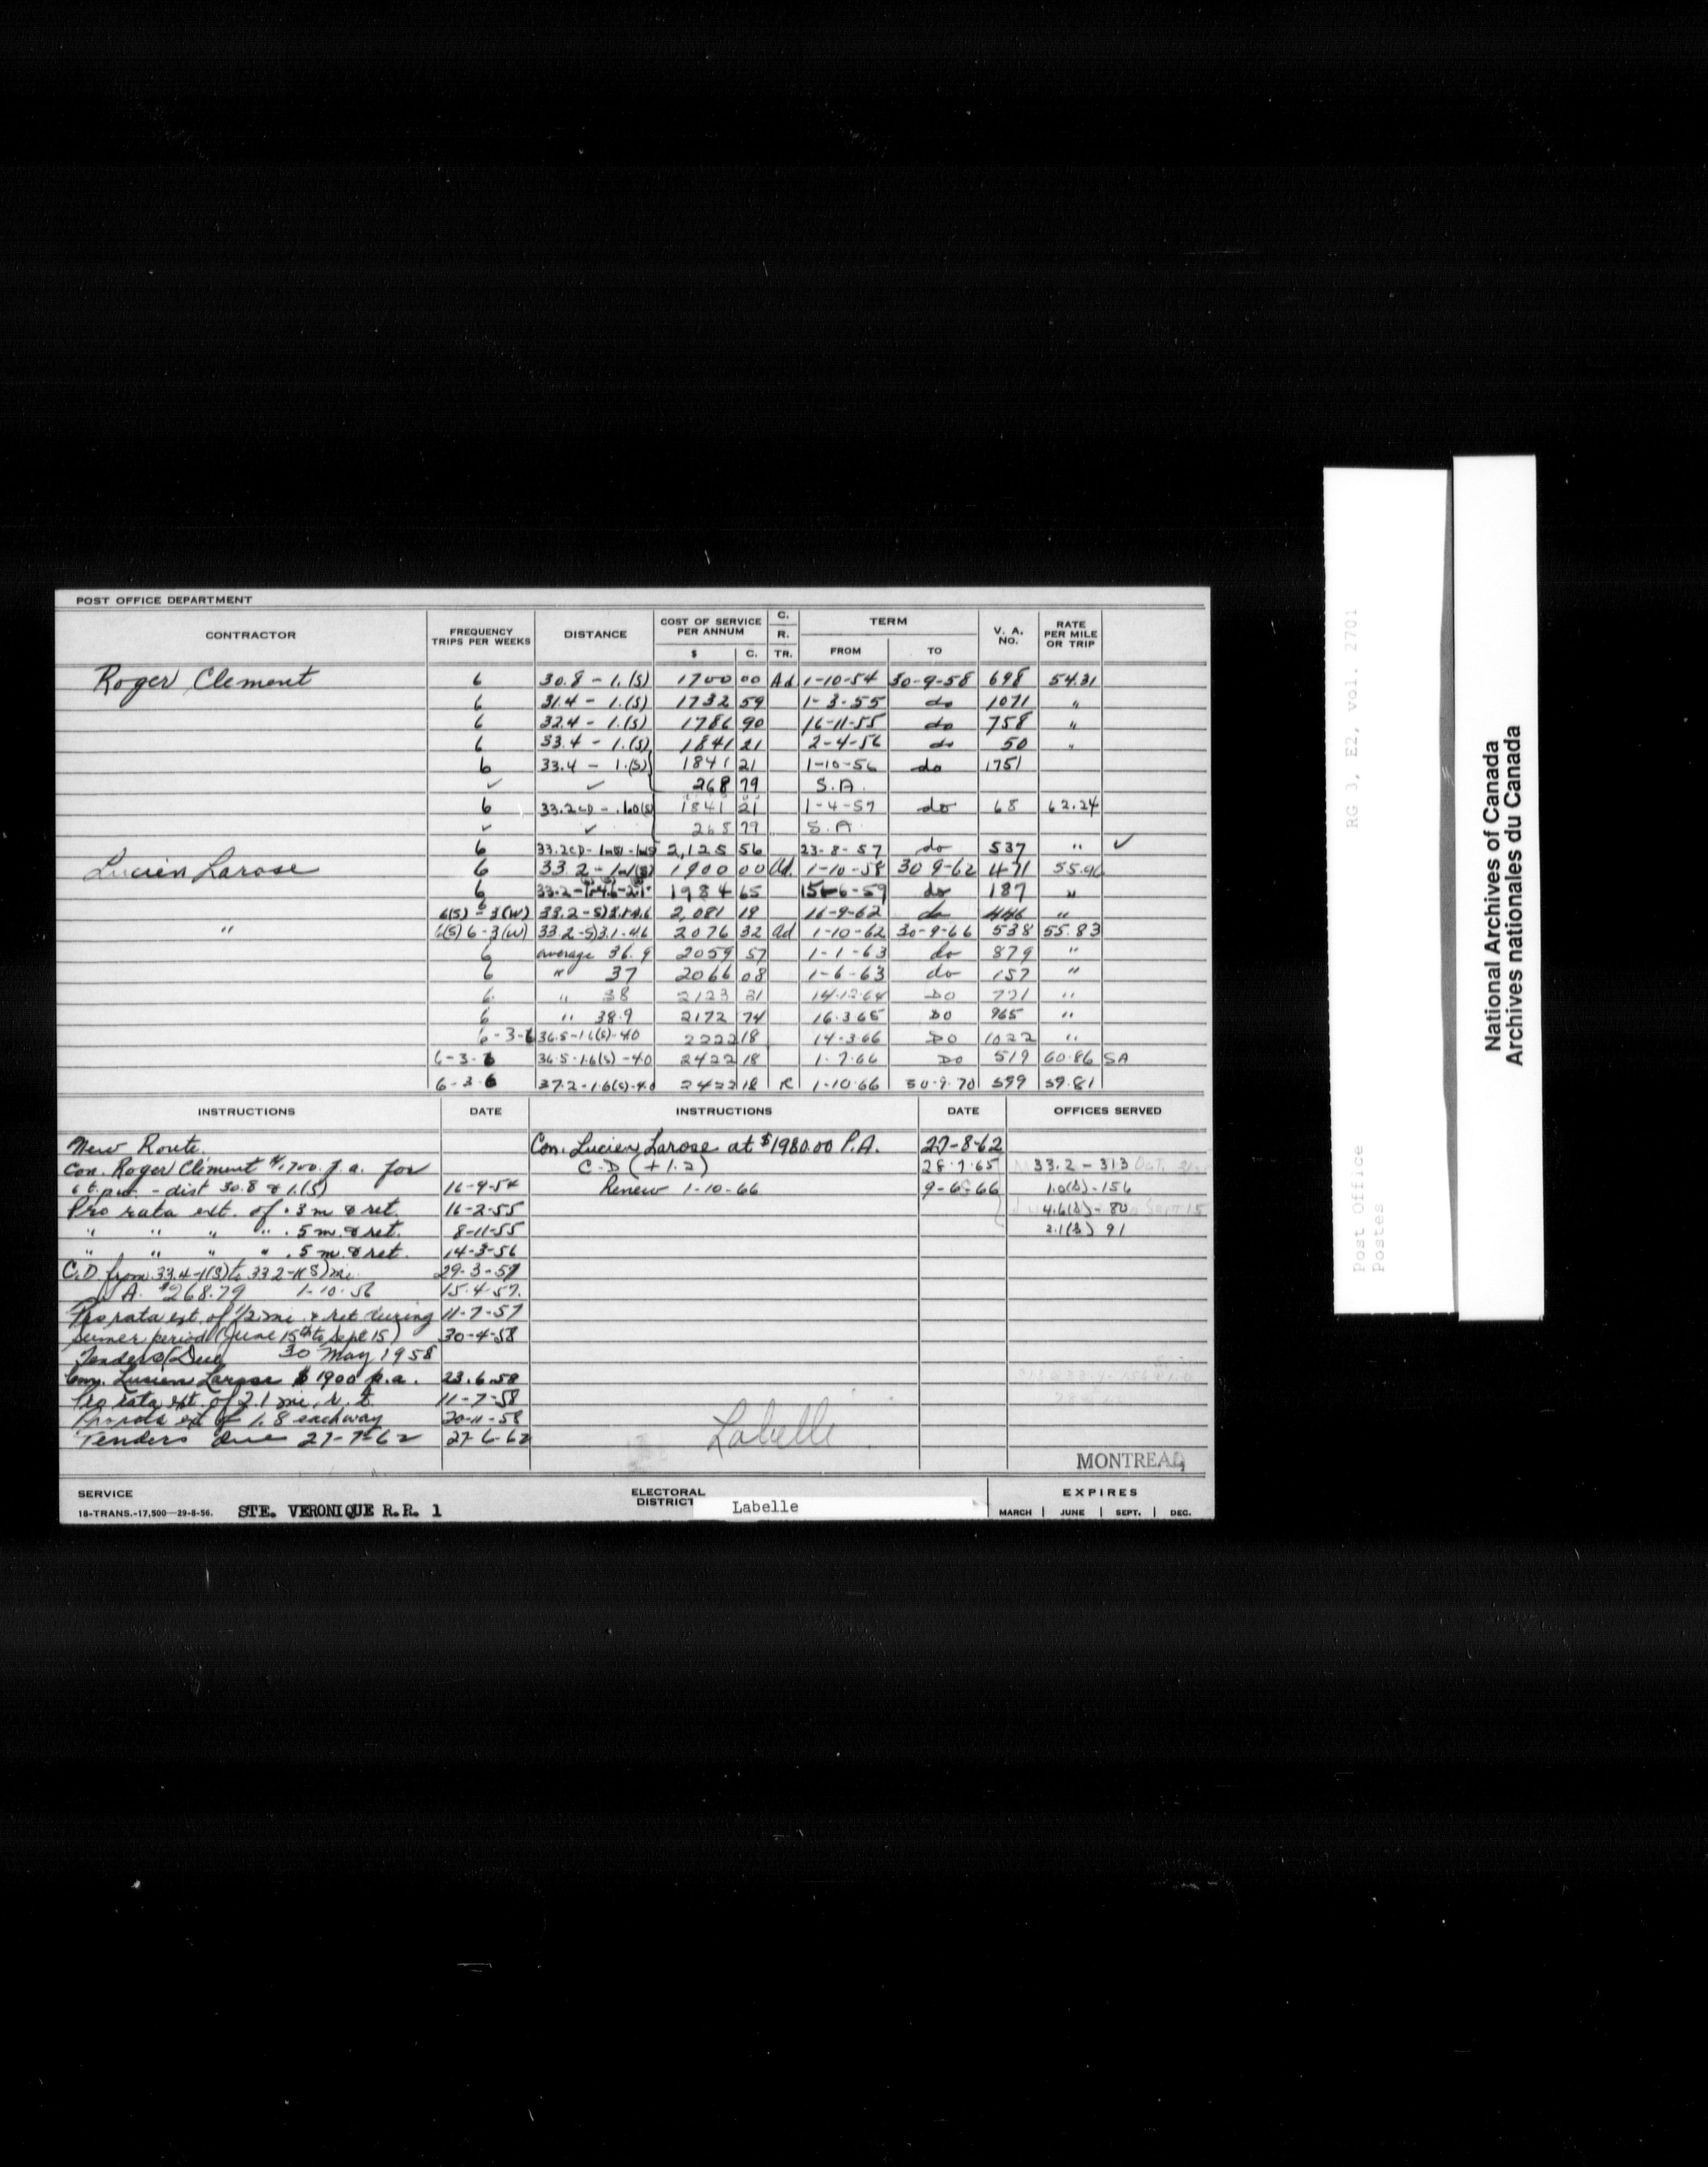 POST OFFICE DEPARTMENT
CONTRACTOR FREQUENCY TRIPS PER WEEKS DISTANCE COST OF SERVICE PER ANNUM $ C. C. R. TR. TERM FROM TO V. A. NO. RATE PER MILE OR TRIP
Roger Clement 6 30.8 - 1.(S) 1700 00 Ad 1-10-54 30-9-58 698 54.31
6 31.4 - 1.(S) 1732 59 1-3-55 do 1071 "
6 32.4 - 1.(S) 1786 90 16-11-55 do 758 "
6 33.4 - 1.(S) 1841 21 2-4-56 do 50 "
6 33.4 - 1.(S) 1841 21 1-10-56 do 1751
✓ ✓ 268 79 S.A.
6 33.2 CD - 1.0(S) 1841 21 1-4-57 do 68 62.24
✓ ✓ 268 79 S.A.
6 33.2 CD 2,125 56 23-8-57 do 537 " ✓
Lucien Larose 6 33.2 1900 00 Ad. 1-10-58 30 9-62 1471 55.96
6 33.2 1984 65 15-6-59 do 187 "
6(S) - 3(W) 33.2 2,081 19 16-9-62 do 446 "
" 6(S) 6-3(W) 33.2-S)3.1-4.6 2076 32 Ad 1-10-62 30-9-66 538 55.83
6 average 36.9 2059 57 1-1-63 do 879 "
6 " 37 2066 08 1-6-63 do 157 "
6 " 38 2123 31 14-12-64 DO 721 "
6 " 38.9 2172 74 16.3.65 DO 965 "
6-3-6 36.5-1.6(S)-4.0 2222 18 14-3.66 DO 1022 "
6-3-6 36.5-1.6(S)-4.0 2422 18 1-7.66 DO 519 60.86 SA
6-3-6 37.2-1.6(S)-4.0 2422 18 R 1-10.66 30-9.70 599 59.81
INSTRUCTIONS DATE INSTRUCTIONS DATE OFFICES SERVED
New Route. Con. Lucien Larose at $1980.00 P.A. 27-8-62
Con. Roger Clement $1,700. p.a. for C.D (+1.2) 28.7.65 33.2 - 313
6 t.p.w. - dist 30.8 & 1.(S) 16-9-54 Renew 1-10-66 9-6-66 1.0(S)-156
Pro rata ext. of .3 m & ret. 16-2-55 4.6(S)- 80
" " " " .5 m. & ret. 8-11-55 2.1(S) 91
" " " " .5 m. & ret. 14-3-56
C.D. from 33.4-1(S) to 33.2-1(S) mi. 29-3-57
S.A. $268.79 1-10-56 15.4.57.
Pro rata ext. of 1/2 mi. & ret during 11-7-57
sumer period (June 15th to Sept 15) 30-4-58
Tenders Due 30 May 1958
Con. Lucien Larose $1900 p.a. 23.6.58
Pro rata ext. of 2.1 mi. & t. 11-7-58
Pro rata ext of 1.8 each way 20-11-58
Tenders due 27-7-62 27-6-62
Labelle
MONTREAL
SERVICE ELECTORAL DISTRICT Labelle EXPIRES
18-TRANS.-17,500—29-8-56. STE. VERONIQUE R.R. 1 MARCH | JUNE | SEPT. | DEC.
RG 3, E2, vol. 2701
Post Office
Postes
National Archives of Canada
Archives nationales du Canada